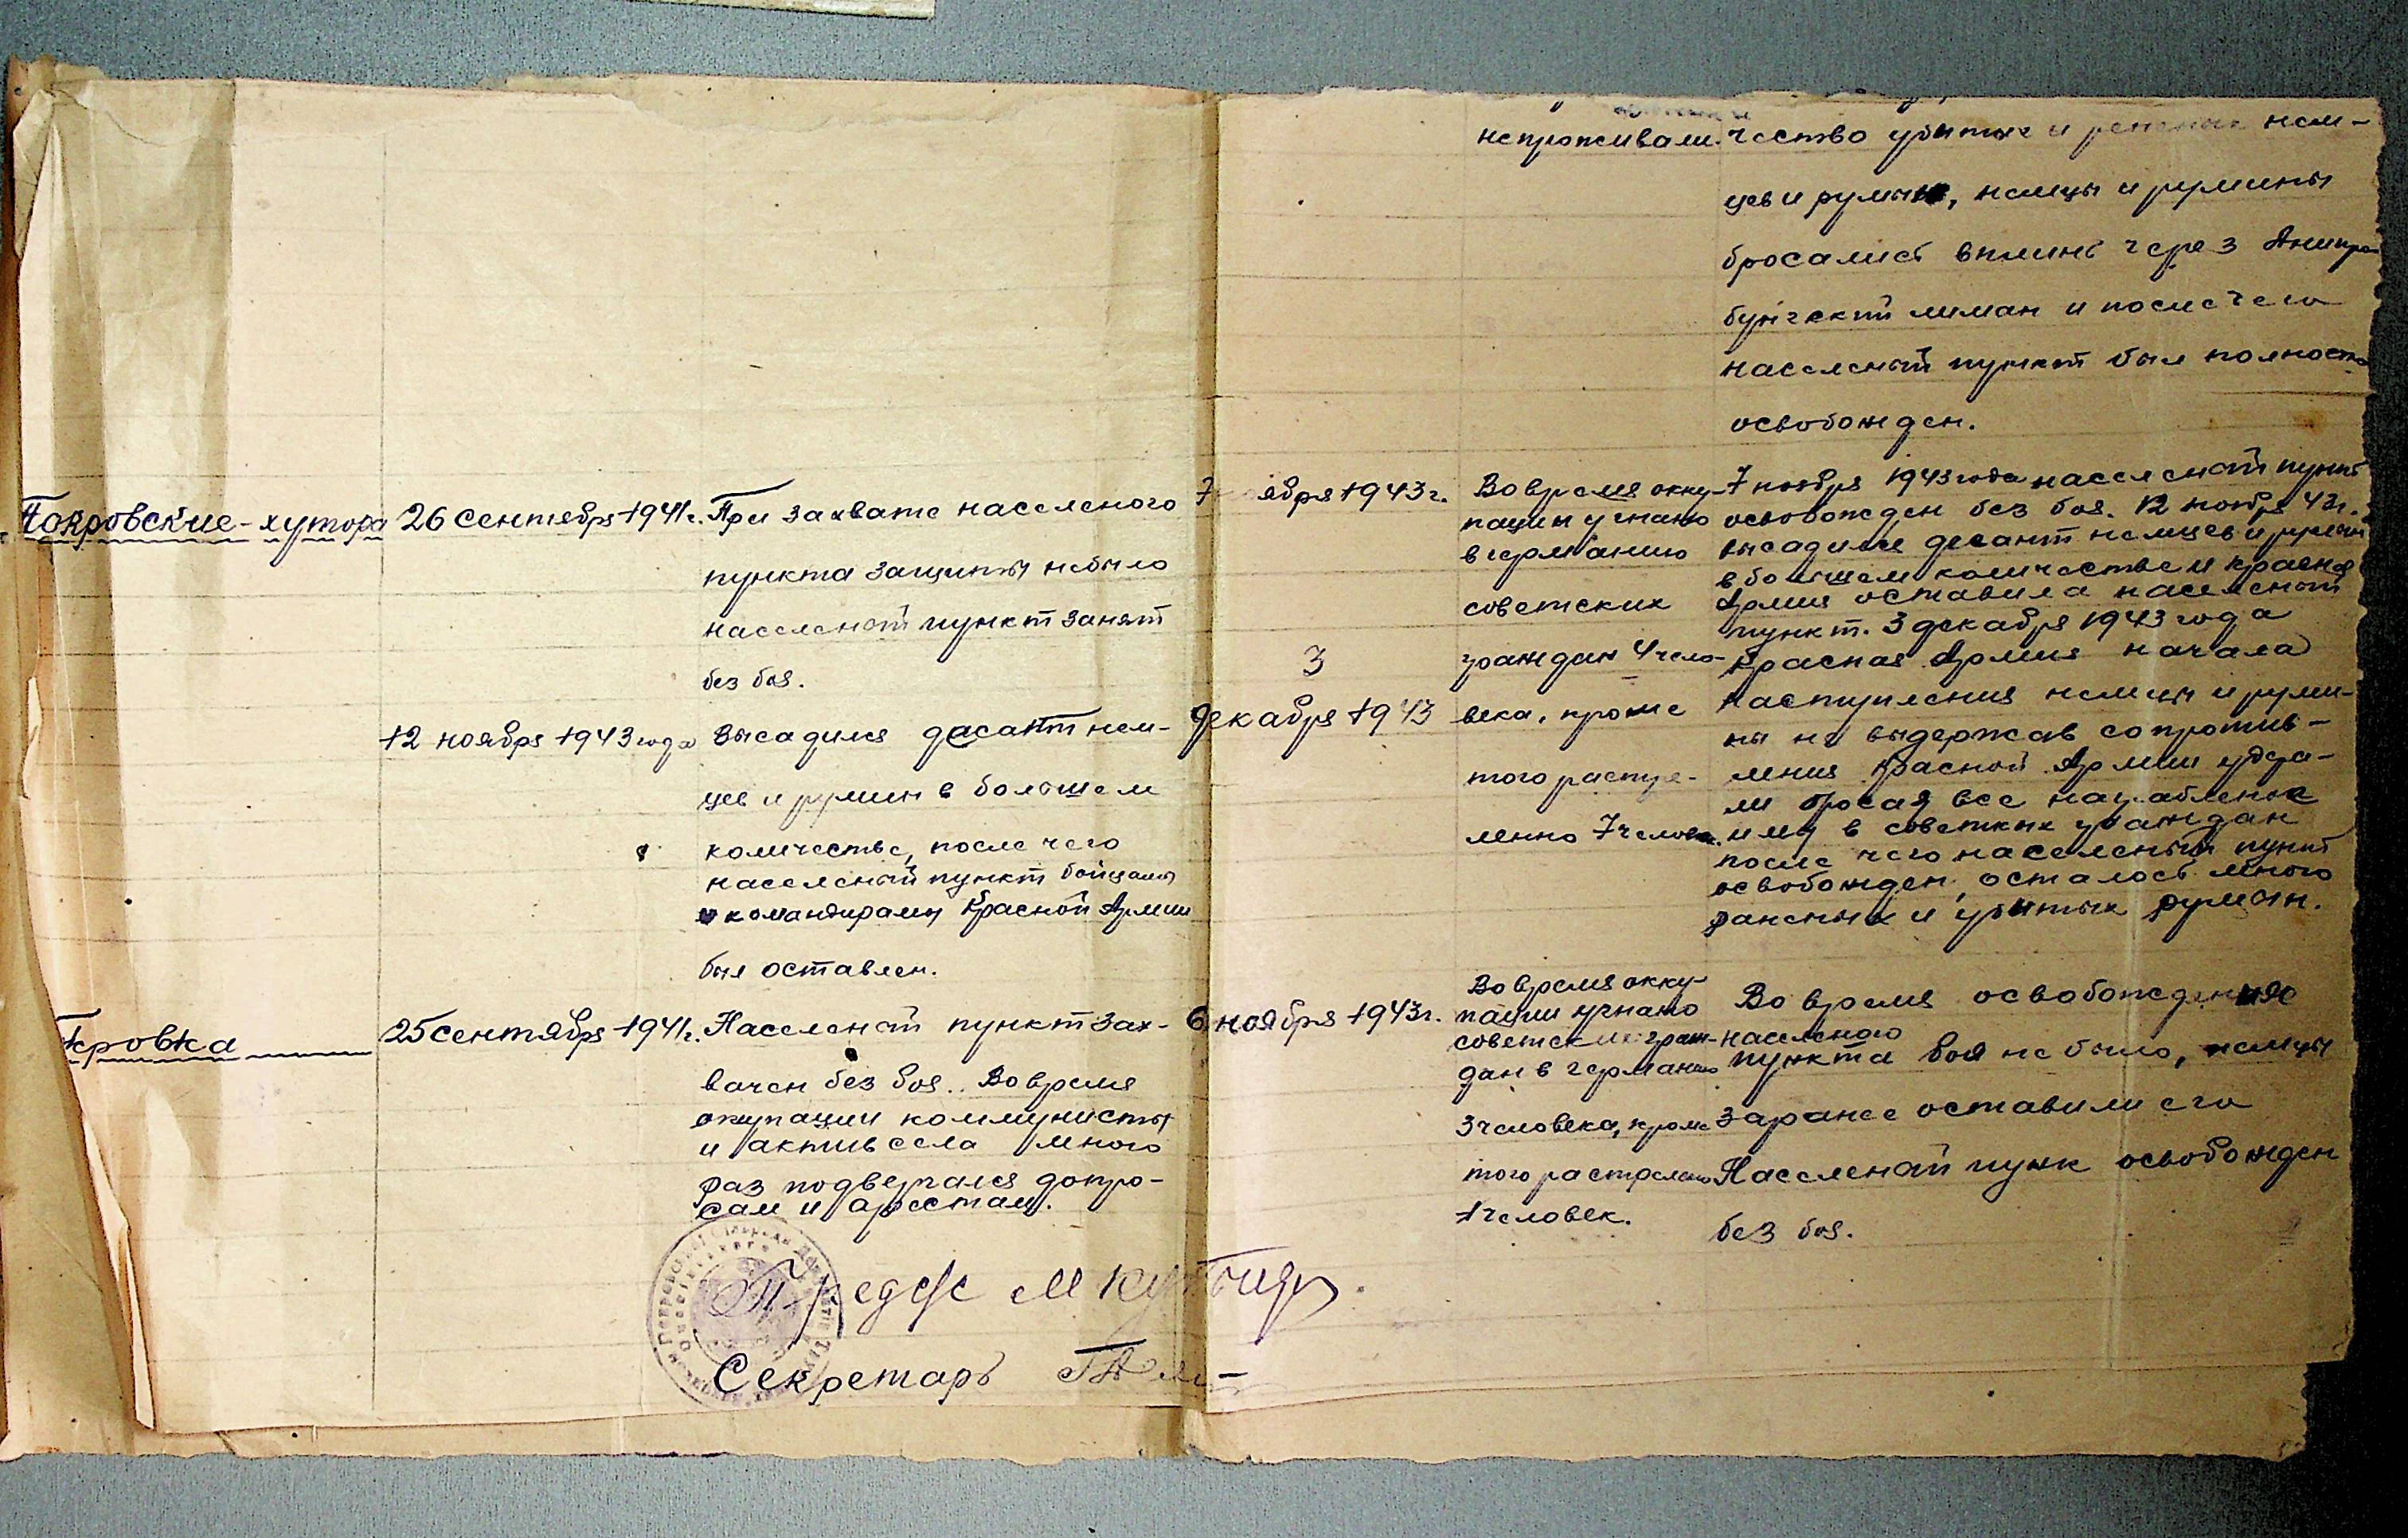 непроживали.
чество убитых и раненых нем-
цев и румын, немцы и румины
бросались вплинь через Днипро
бунгскит лиман и после чего
населеный пункт был полность
освобожден.
Покровские-хутора
26 сентября 1941г.
При захвате населеного
пункта защиты небыло
населеный пункт занят
без боя.
7 ноября 1943г.
Во время окку-
пации угнано
в германию
советских
граждан 4 чело-
века, кроме
того растре-
лянно 7 человек.
7 ноября 1943 года населеный пункт
освобожден без боя. 12 ноября 43г.
высадился десант немцев и румын
в большем количестве и красная
Армия оставила населеный
пункт. 3 декабря 1943 года
Красная Армия начала
наступления немцы и руми-
ны не выдержав сопротив-
ления Красной Армии удра-
ли бросая все награбленое
ими в советских граждан
после чего населеный пункт
освобожден, осталось много
раненых и убитых румын.
12 ноября 1943 года
Высадился десант нем-
цев и румын в большем
количестве, после чего
населеный пункт бойцами
и командирами Красной Армии
был оставлен.
3
декабря 1943
кровка
25 сентября 1941г.
Населеный пункт зах-
вачен без боя. Во время
окупации коммунисты
и актив села много
раз подвергался допро-
сам и арестам.
6 ноября 1943г.
Во время окку-
пации угнано
советских граж-
дан в германию
3 человека, кроме
того растреляно
1 человек.
Во время освобождения
населеного
пункта боя не было, немцы
заранее оставили его
Населеный пунк освобожден
без боя.
Предс/с
Секретарь